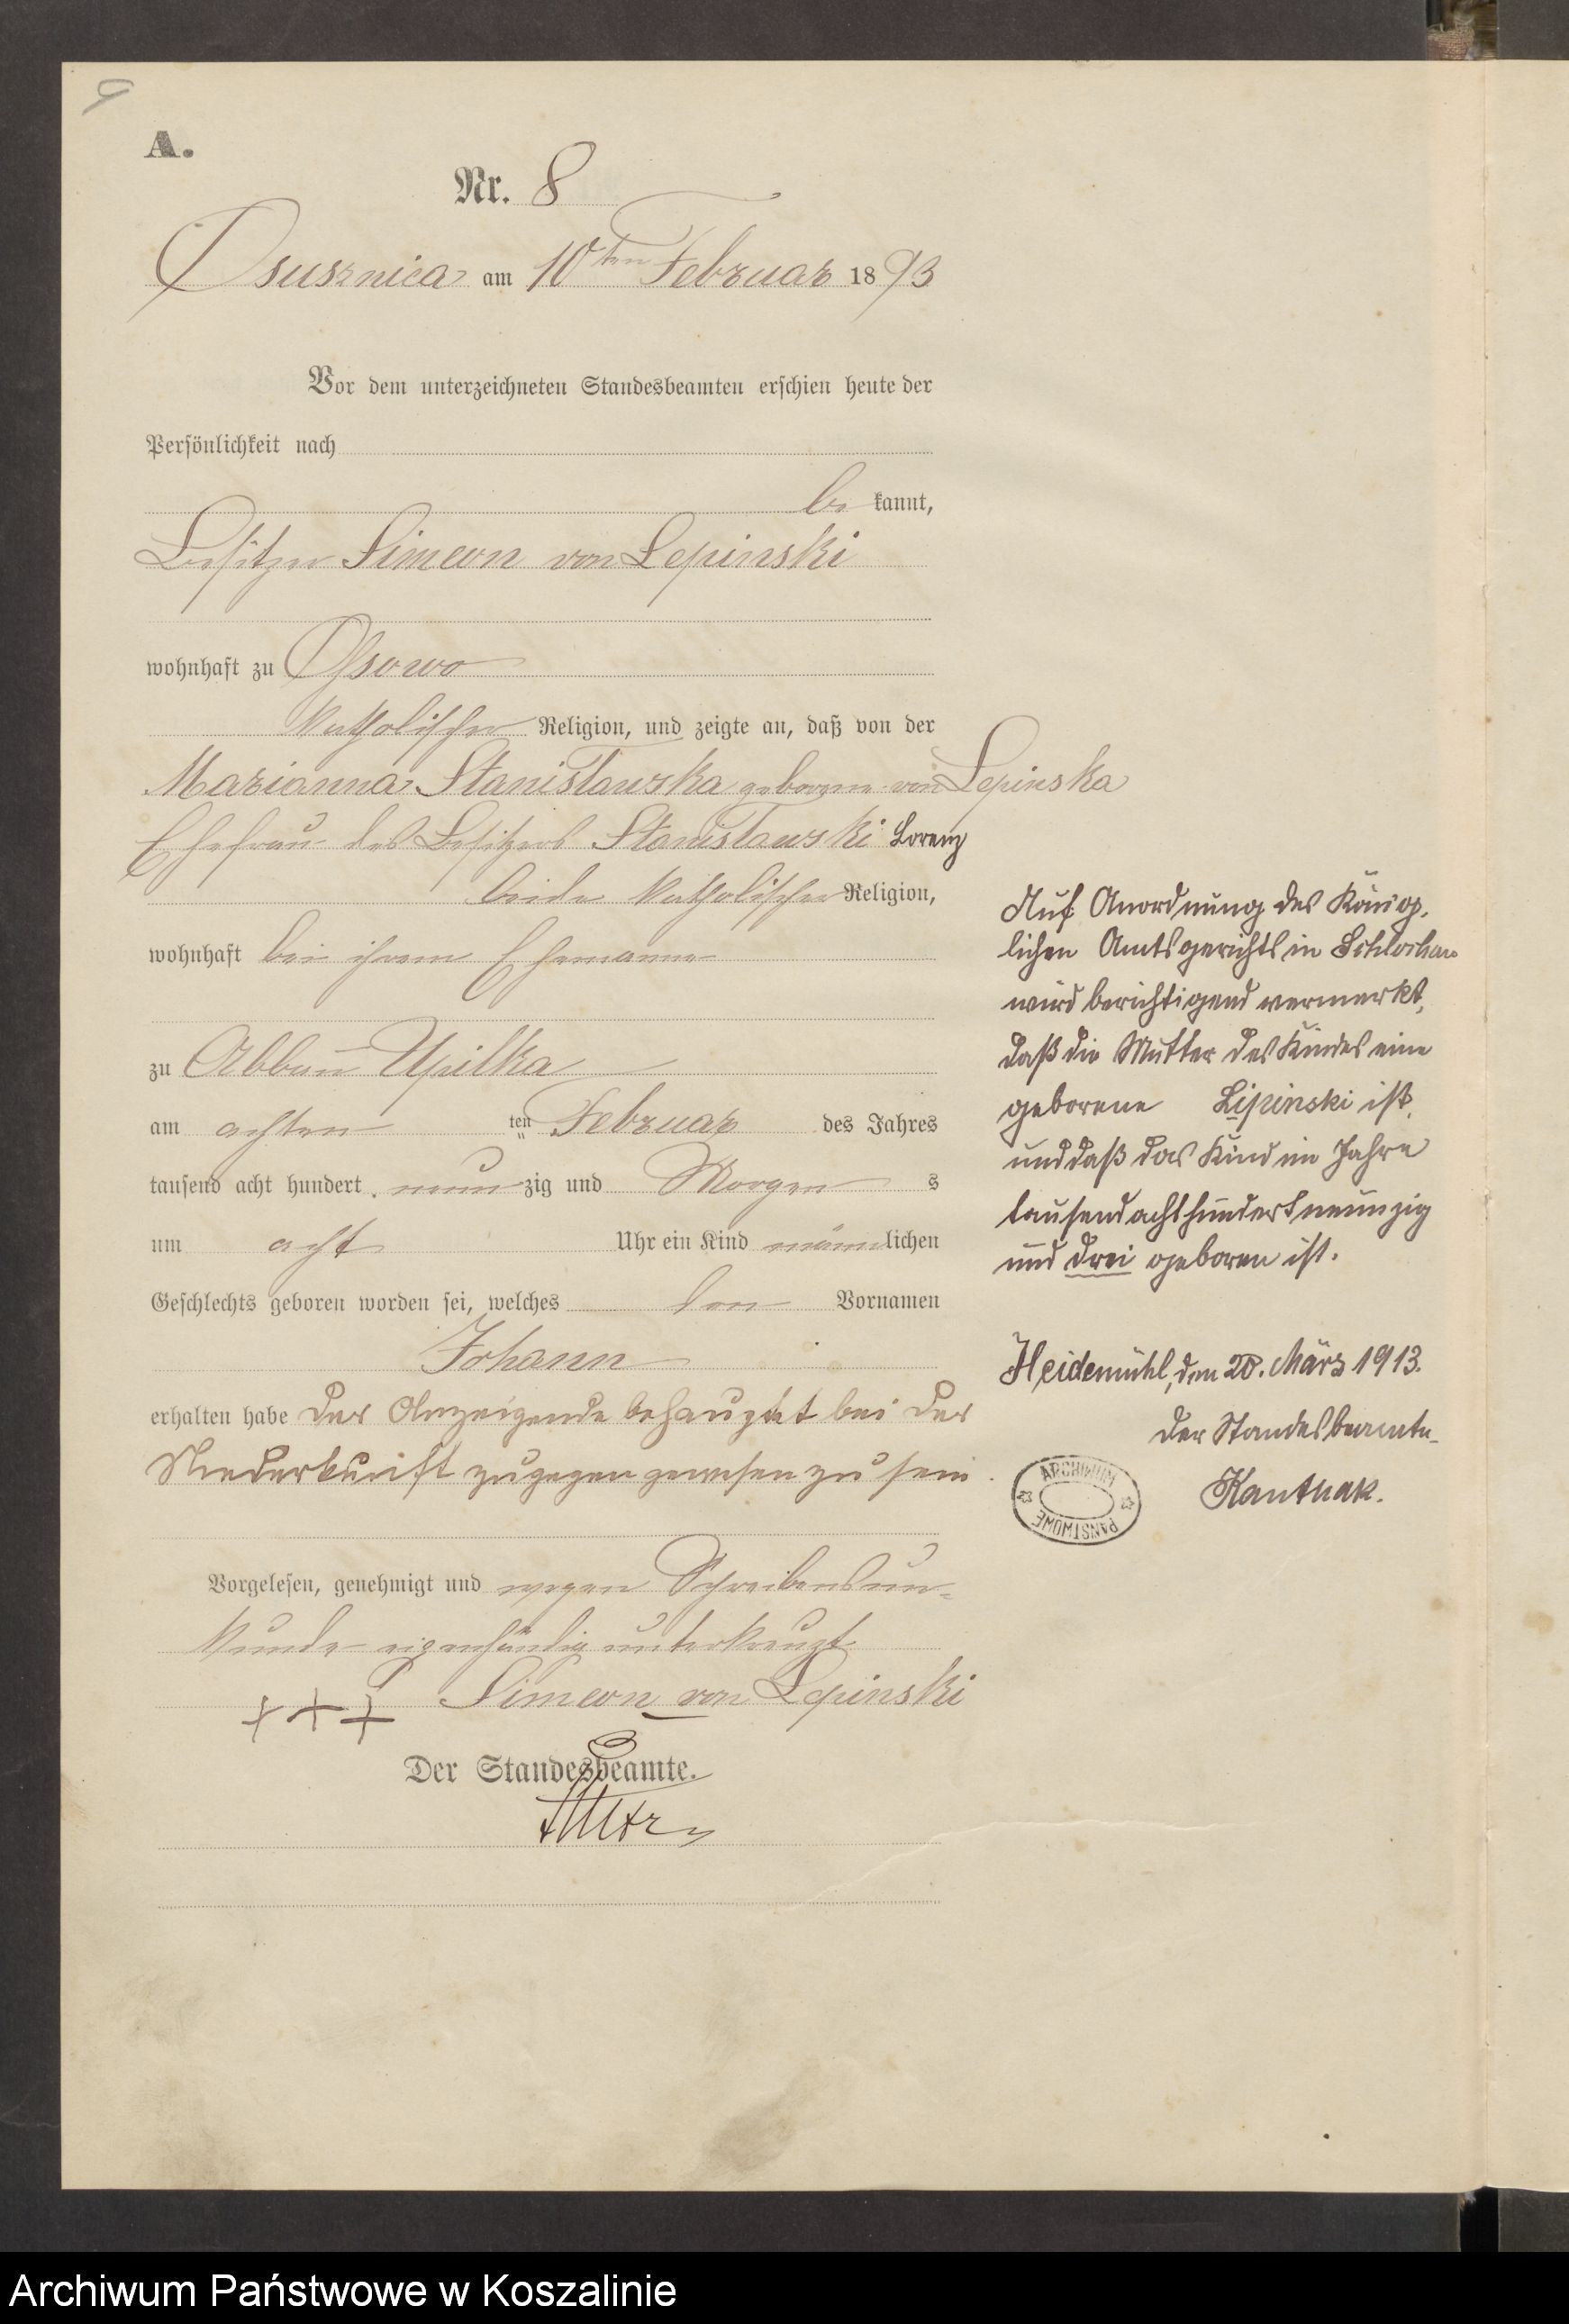 A.
Nr. 8
Osusznica am 10ten Februar 1893
Vor dem unterzeichneten Standesbeamten erschien heute der
Persönlichkeit nach
be kannt,
Besitzer Simeon von Lepinski
wohnhaft zu Ossowo
katholischer Religion, und zeigte an, daß von der
Marianna Stanislawska geborene von Lepinska
Ehefrau des Besitzers Stanislawski Lorenz
beide katholischer Religion,
wohnhaft bei ihrem Ehemanne
zu Abbau Upilka
am achten ten Februar des Jahres
tausend acht hundert neun zig und Morgen s
um acht Uhr ein Kind männ lichen
Geschlechts geboren worden sei, welches den Vornamen
Johann
erhalten habe Der Anzeigende behauptet bei der
Niederkunft zugegen gewesen zu sein.
Vorgelesen, genehmigt und wegen Schreibensun-
kunde eigenhändig unterkreuzt
+++ Simeon von Lepinski
Der Standesbeamte.
Auf Anordnung des König-
lichen Amtsgerichts in Schlochau
wird berichtigend vermerkt,
daß die Mutter des Kindes eine
geborene Lipinski ist,
und daß das Kind im Jahre
tausend achthundert neunzig
und drei geboren ist.
Heidemühl, den 20. März 1913.
Der Standesbeamte
Kanthak.
ARCHIWUM
PAŃSTWOWE
Archiwum Państwowe w Koszalinie